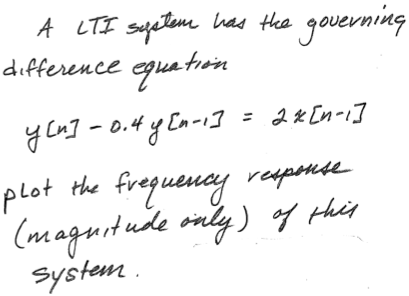 A LTI system has the governing
difference equation
y[n] - 0.4 y[n-1] = 2x[n-1]
plot the frequency response
(magnitude only) of this
system.